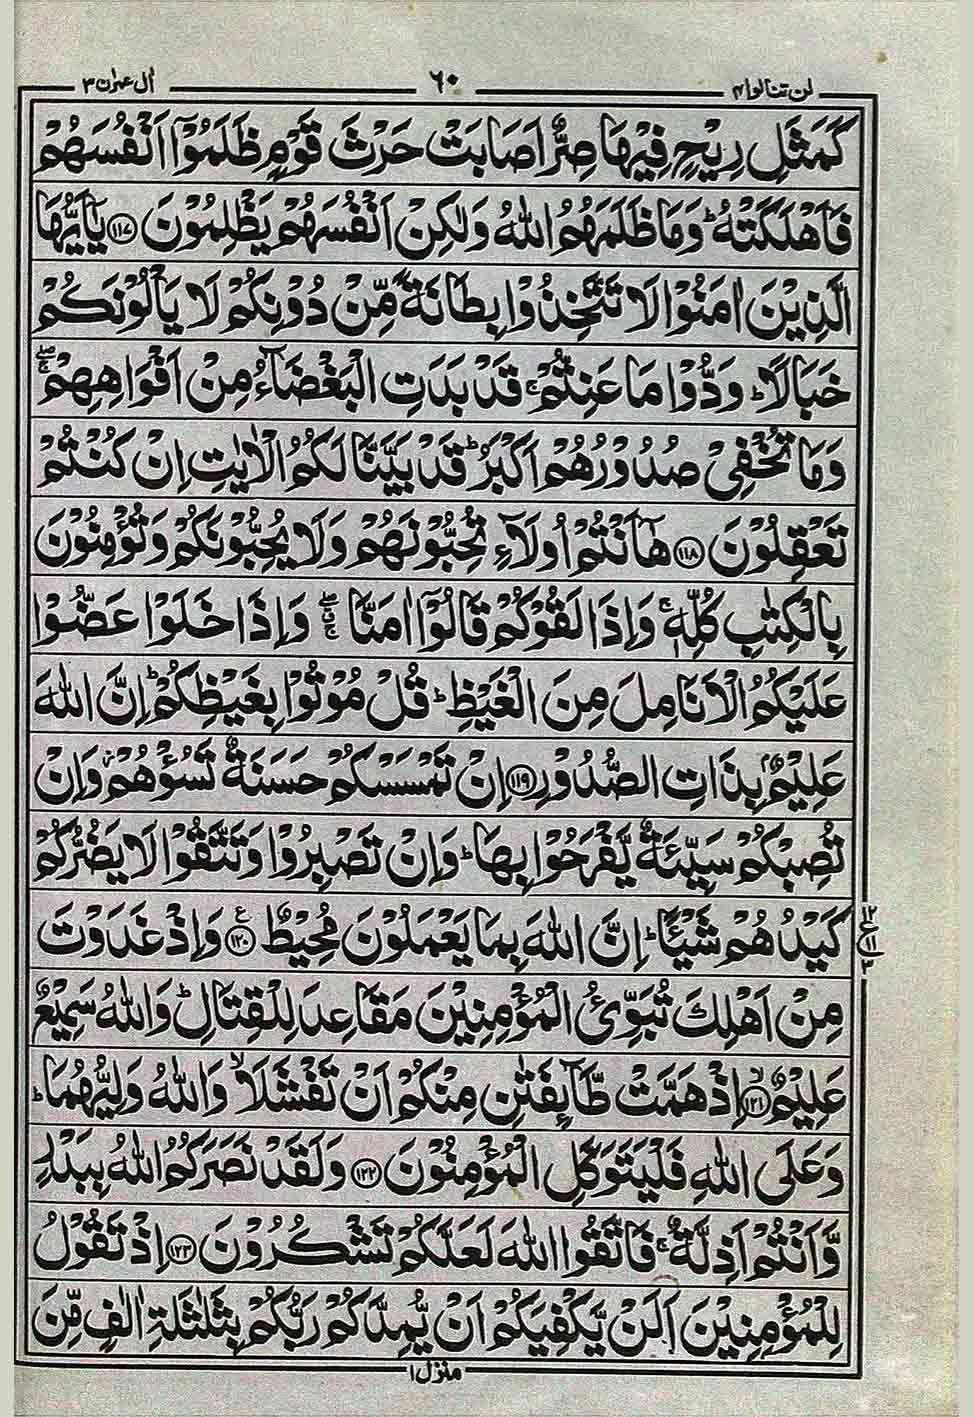 لن تنالوا ۴ ۶۰ اٰل عمرٰن ۳
كَمَثَلِ رِيْحٍ فِيْهَا صِرٌّ اَصَابَتْ حَرْثَ قَوْمٍ ظَلَمُوْۤا اَنْفُسَهُمْ
فَاَهْلَكَتْهُ ؕ وَمَا ظَلَمَهُمُ اللّٰهُ وَلٰكِنْ اَنْفُسَهُمْ يَظْلِمُوْنَ ﴿۱۱۷﴾ يٰۤاَيُّهَا
الَّذِيْنَ اٰمَنُوْا لَا تَتَّخِذُوْا بِطَانَةً مِّنْ دُوْنِكُمْ لَا يَاْلُوْنَكُمْ
خَبَالًا ؕ وَدُّوْا مَا عَنِتُّمْ ۚ قَدْ بَدَتِ الْبَغْضَآءُ مِنْ اَفْوَاهِهِمْ ۖۚ
وَمَا تُخْفِيْ صُدُوْرُهُمْ اَكْبَرُ ؕ قَدْ بَيَّنَّا لَكُمُ الْاٰيٰتِ اِنْ كُنْتُمْ
تَعْقِلُوْنَ ﴿۱۱۸﴾ هٰۤاَنْتُمْ اُولَآءِ تُحِبُّوْنَهُمْ وَلَا يُحِبُّوْنَكُمْ وَتُؤْمِنُوْنَ
بِالْكِتٰبِ كُلِّهٖ ۚ وَاِذَا لَقُوْكُمْ قَالُوْۤا اٰمَنَّا ۖۚ وَاِذَا خَلَوْا عَضُّوْا
عَلَيْكُمُ الْاَنَامِلَ مِنَ الْغَيْظِ ؕ قُلْ مُوْتُوْا بِغَيْظِكُمْ ؕ اِنَّ اللّٰهَ
عَلِيْمٌۢ بِذَاتِ الصُّدُوْرِ ﴿۱۱۹﴾ اِنْ تَمْسَسْكُمْ حَسَنَةٌ تَسُؤْهُمْ ؗ وَاِنْ
تُصِبْكُمْ سَيِّئَةٌ يَّفْرَحُوْا بِهَا ؕ وَاِنْ تَصْبِرُوْا وَتَتَّقُوْا لَا يَضُرُّكُمْ
كَيْدُهُمْ شَيْـًٔا ؕ اِنَّ اللّٰهَ بِمَا يَعْمَلُوْنَ مُحِيْطٌ ﴿۱۲۰﴾ ع وَاِذْ غَدَوْتَ
۱۲ ع ۱۱ ۳
مِنْ اَهْلِكَ تُبَوِّئُ الْمُؤْمِنِيْنَ مَقَاعِدَ لِلْقِتَالِ ؕ وَاللّٰهُ سَمِيْعٌ
عَلِيْمٌ ﴿۱۲۱﴾ ۙ اِذْ هَمَّتْ طَّآئِفَتٰنِ مِنْكُمْ اَنْ تَفْشَلَا ۙ وَاللّٰهُ وَلِيُّهُمَا ؕ
وَعَلَى اللّٰهِ فَلْيَتَوَكَّلِ الْمُؤْمِنُوْنَ ﴿۱۲۲﴾ وَلَقَدْ نَصَرَكُمُ اللّٰهُ بِبَدْرٍ
وَّاَنْتُمْ اَذِلَّةٌ ۚ فَاتَّقُوا اللّٰهَ لَعَلَّكُمْ تَشْكُرُوْنَ ﴿۱۲۳﴾ اِذْ تَقُوْلُ
لِلْمُؤْمِنِيْنَ اَلَنْ يَّكْفِيَكُمْ اَنْ يُّمِدَّكُمْ رَبُّكُمْ بِثَلٰثَةِ اٰلٰفٍ مِّنَ
منزل ۱